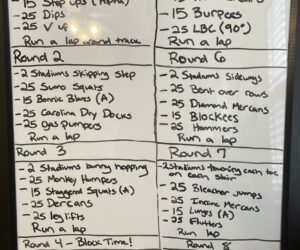 - 15 Step ups (Alpha)
- 25 Dips
- 25 V up
Run a lap around track
Round 2
- 2 Stadiums skipping step
- 25 Sumo Squats
- 15 Bonnie Blairs (A)
- 25 Carolina Dry Docks
- 25 Gas Pumpers
Run a lap
Round 3
- 2 Stadiums bunny hopping
- 25 Monkey Humpers
- 15 Staggered Squats (A)
- 25 Dercans
- 25 leg lifts
Run a lap
Round 4 - Block Time!
- 15 Burpees
- 25 LBC (90°)
Run a lap
Round 6
- 2 Stadiums Sideways
- 25 Bent over rows
- 25 Diamond Mercans
- 15 Blockees
- 25 Hammers
Run a lap
Round 7
- 2 Stadiums touching each toe
on each stair
- 25 Bleacher jumps
- 25 Incline Mercans
- 15 Lunges (A)
- 25 Flutters
Run a lap
Round 8